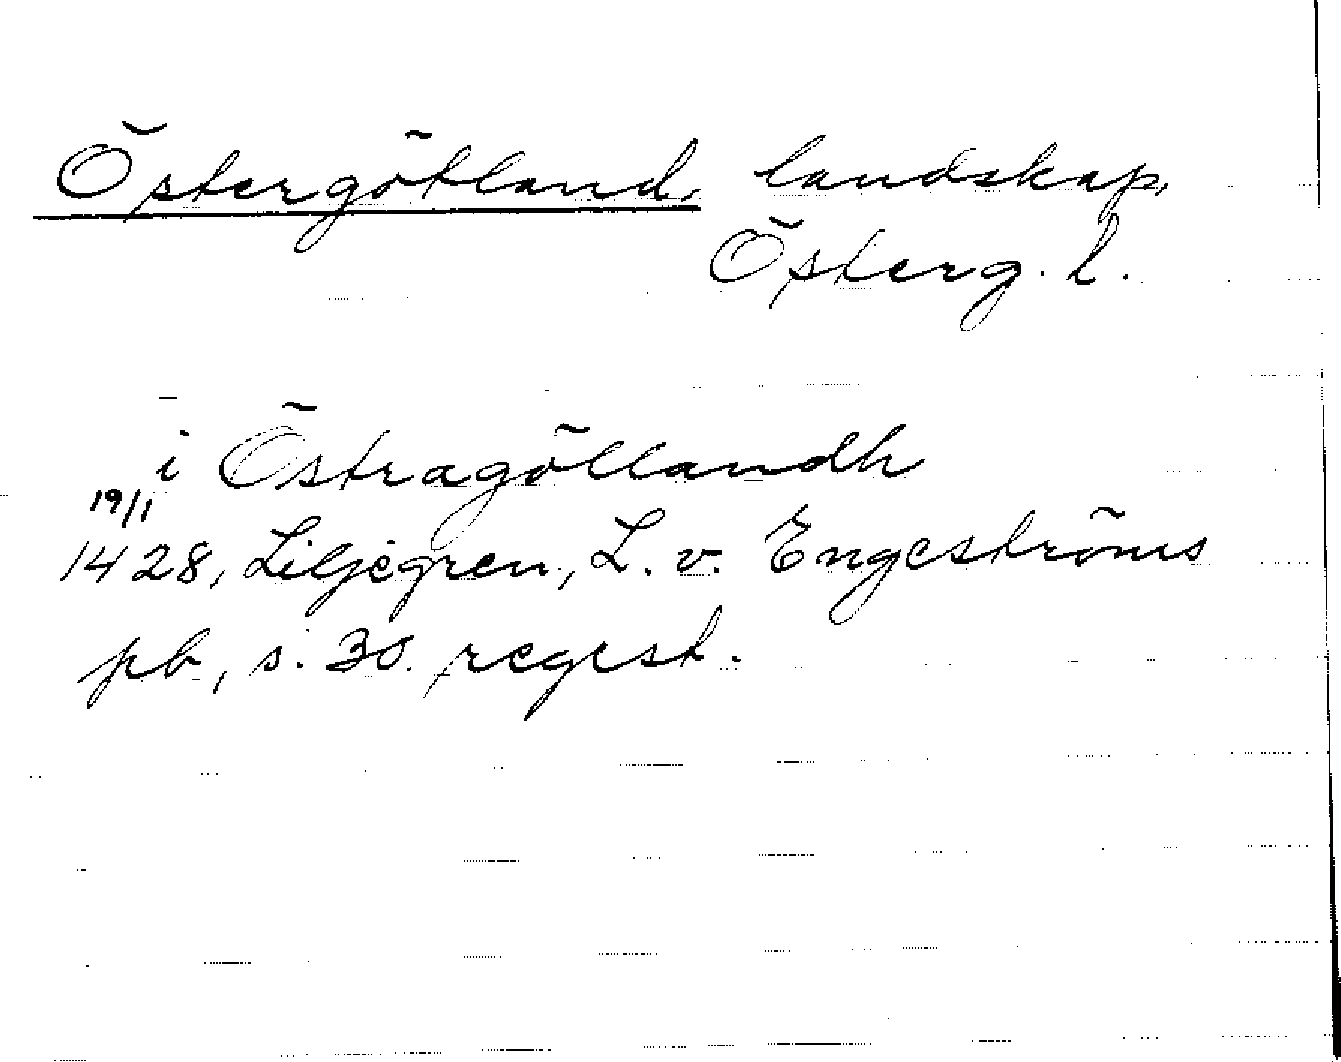 Östergötland, landskap,
Österg. l.
i Östragötlandh
19/1
1428, Liljegren, L. v. Engeströms
pb, s. 30. regest.